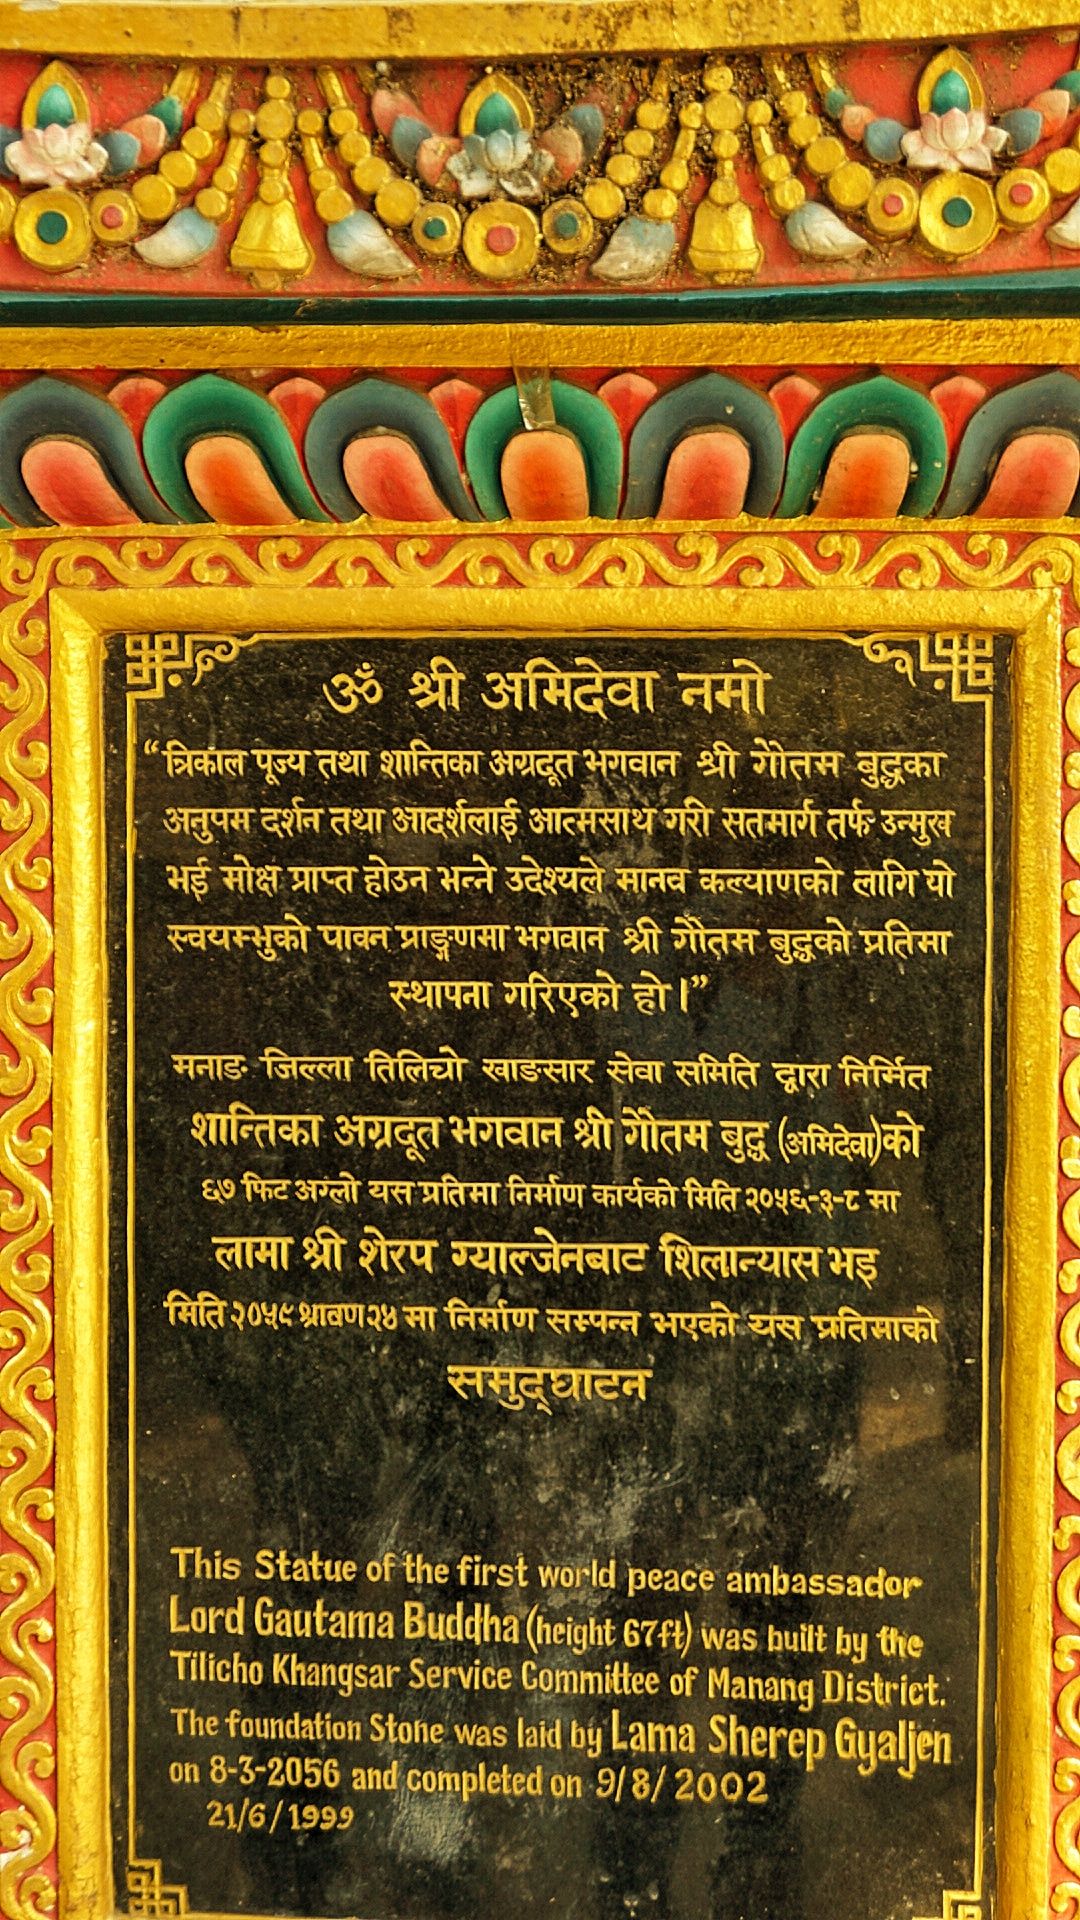 ॐ श्री अमिदेवा नमो
“त्रिकाल पूज्य तथा शान्तिका अग्रदूत भगवान श्री गौतम बुद्धका
अनुपम दर्शन तथा आदर्शलाई आत्मसाथ गरी सतमार्ग तर्फ उन्मुख
भई मोक्ष प्राप्त होउन भन्ने उदेश्यले मानव कल्याणको लागि यो
स्वयम्भुको पावन प्राङ्गणमा भगवान श्री गौतम बुद्धको प्रतिमा
स्थापना गरिएको हो।”
मनाङ जिल्ला तिलिचो खाङसार सेवा समिति द्वारा निर्मित
शान्तिका अग्रदूत भगवान श्री गौतम बुद्ध (अमिदेवा)को
६७ फिट अग्लो यस प्रतिमा निर्माण कार्यको मिति २०५६-३-८ मा
लामा श्री शेरप ग्याल्जेनबाट शिलान्यास भइ
मिति २०५९ श्रावण २४ मा निर्माण सम्पन्न भएको यस प्रतिमाको
समुद्घाटन
This Statue of the first world peace ambassador
Lord Gautama Buddha (height 67ft) was built by the
Tilicho Khangsar Service Committee of Manang District.
The foundation Stone was laid by Lama Sherep Gyaljen
on 8-3-2056 and completed on 9/8/2002
21/6/1999